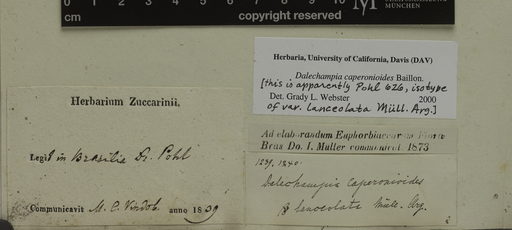 cm
copyright reserved
MÜNCHEN
Herbaria, University of California, Davis (DAV)
Dalechampia caperonioides Baillon.
[this is apparently Pohl 626, isotype
Det. Grady L. Webster 2000
of var. lanceolata Müll. Arg.]
Herbarium Zuccarinii,
Legit in Brasilia Dr. Pohl
Communicavit M. C. Vindob. anno 1839
Ad elaborandum Euphorbiacearum
Bras Do. I. Muller communicat. 1873
Dalechampia caperonioides
β lanceolata Müll. Arg.